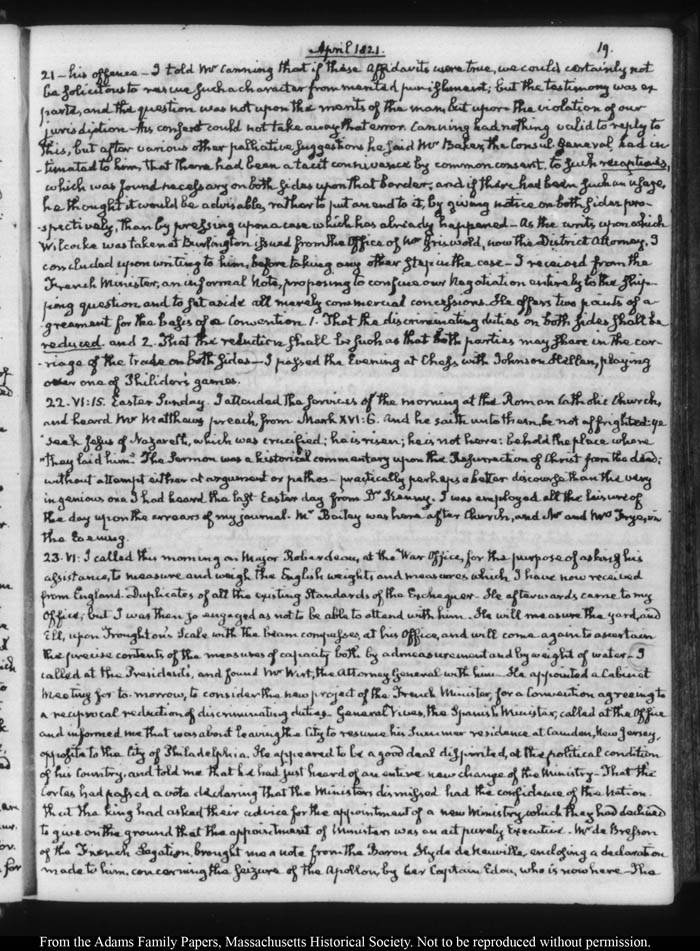 April 1821. 19.
21 — his offence — I told Mr Canning that if these affidavits were true, we could certainly not
be solicitous to rescue such a character from merited punishment; but the testimony was ex
parte, and the question was not upon the merits of the man, but upon the violation of our
jurisdiction — his consent could not take away that error. Canning had nothing valid to reply to
this, but after various other palliative suggestions he said Mr Baker, the Consul General, had in-
-timated to him, that there had been a tacit connivance by common consent, to such
which was found necessary on both sides upon that border; and if there had been such an usage,
he thought it would be advisable, rather to put an end to it, by giving notice on both sides pro-
-spectively, than by pressing upon a case which has already happened — As the writs upon which
Wilcocke was taken at Burlington issued from the Office of Mr Griswold, now the District Attorney, I
concluded upon writing to him, before taking any other step in the case — I received from the
French Minister, an informal Note, proposing to confine our Negotiation entirely to the ship-
ping question and to set aside all merely commercial concessions. He offers two points of a-
greement for the basis of a Convention 1. That the discriminating duties on both sides shall be
reduced. and 2. That the reduction shall be such as that both parties may share in the car-
-riage of the trade on both sides — I passed the Evening at Chess with Johnson Hellen, playing
over one of Philidor's games.
22. VI:15. Easter Sunday. I attended the services of the morning at the Roman Catholic Church,
and heard Mr Matthews preach, from Mark XVI:6. And he saith unto them, be not affrighted: ye
"seek Jesus of Nazareth, which was crucified: he is risen; he is not here: behold the place where
"they laid him." The Sermon was a historical commentary upon the Resurrection of Christ from the dead;
without attempt either at argument or pathos — practically perhaps a better discourse than the very
ingenious one I had heard the last Easter day from Dr Kenny. I was employed all the leisure of
the day upon the arrears of my journal. Mr Bailey was here after Church, and Mr and Mrs Frye, in
the Evening.
23. VI: I called this morning on Major Roberdeau, at the War Office, for the purpose of asking his
assistance, to measure and weigh the English weights and measures which I have now received
from England. Duplicates of all the existing Standards of the Exchequer — He afterwards came to my
Office; but I was then so engaged as not to be able to attend with him. He will measure the yard, and
Ell, upon Troughton's Scale with the beam compasses, at his Office, and will come again to ascertain
the precise contents of the measures of capacity both by admeasurement and by weight of water — I
called at the President's, and found Mr Wirt, the Attorney General with him — He appointed a Cabinet
Meeting for to-morrow, to consider the new project of the French Minister, for a Convention agreeing to
a reciprocal reduction of discriminating duties — General Vives, the Spanish Minister, called at the Office
and informed me that was about leaving the City to resume his Summer residence at Camden, New Jersey,
opposite to the City of Philadelphia. He appeared to be a good deal dispirited, at the political condition
of his Country, and told me that he had just heard of an entire new change of the Ministry — That the
Cortes had passed a vote declaring that the Ministers dismissed had the confidence of the Nation.
That the King had asked their advice for the appointment of a new Ministry, which they had declined
to give on the ground that the appointment of Ministers was an act purely Executive. Mr de Bresson
of the French Legation, brought me a note from the Baron Hyde de Neuville, enclosing a declaration
made to him, concerning the seizure of the Apollon, by her Captain Edou, who is now here — The
From the Adams Family Papers, Massachusetts Historical Society. Not to be reproduced without permission.